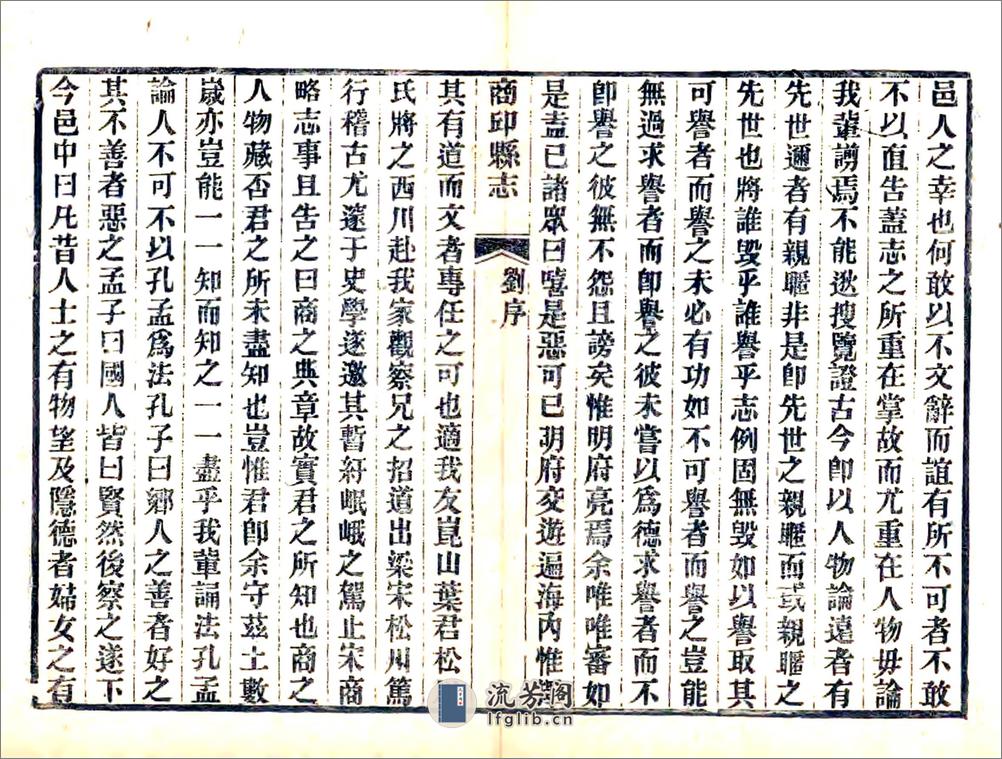 邑人之幸也何敢以不文辭而誼有所不可者不敢
不以直告蓋志之所重在掌故而尤重在人物毋論
我輩謭焉不能遂搜覽證古今卽以人物論遠者有
先世邇者有親暱非是卽先世之親暱而或親暱之
先世也將誰毀乎誰譽乎志例固無毀如以譽取其
可譽者而譽之未必有功如不可譽者而譽之豈能
無過求譽者而卽譽之彼未嘗以爲德求譽者而不
卽譽之彼無不怨且謗矣惟明府亮焉余唯唯審如
是盍已諸眾曰嘻是惡可已明府交遊遍海內惟
商邱縣志
劉序
其有道而文者專任之可也適我友崑山葉君松川
氏將之西川赴我家觀察兄之招道出梁宋松川篤
行稽古尤邃于史學遂邀其暫紆岷峨之駕止宋商
略志事且告之曰商之典章故實君之所知也商之
人物藏否君之所未盡知也豈惟君卽余守茲土數
歲亦豈能一一知而知之一一盡乎我輩誦法孔孟
論人不可不以孔孟爲法孔子曰鄉人之善者好之
其不善者惡之孟子曰國人皆曰賢然後察之遂下
令邑中曰凡昔人士之有物望及隱德者婦女之有
流芳閣
lfglib.cn